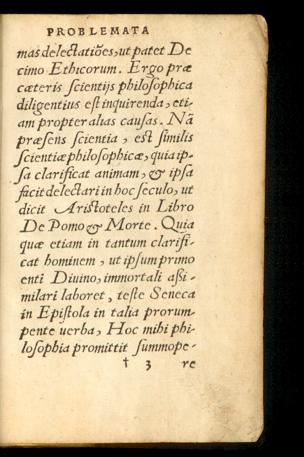 PROBLEMATA
mas delectatiões, ut patet De
cimo Ethicorum. Ergo præ
cæteris scientijs philosophica
diligentius est inquirenda, eti-
am propter alias causas. Nã
præsens scientia, est similis
scientiæ philosophicæ, quia ip-
sa clarificat animam, & ipsa
facit delectari in hoc seculo, ut
dicit Aristoteles in Libro
De Pomo & Morte. Quia
quæ etiam in tantum clarifi-
cat hominem, ut ipsum primo
enti Diuino, immortali aßi-
milari laboret, teste Seneca
in Epistola in talia prorum-
pente uerba, Hoc mihi phi-
losophia promittit summope-
† 3 re